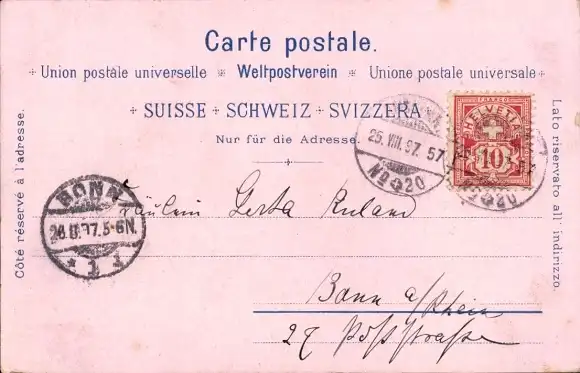 Carte postale.
Union postale universelle Weltpostverein Unione postale universale
SUISSE SCHWEIZ SVIZZERA
Nur für die Adresse.
Côté réservé à l'adresse.
Lato riservato all indirizzo.
HELVETIA
10
25.VIII.97.
No 20
BONN
5-6N.
1
Fräulein Gerta Ruland
Bonn a/Rhein
27 Poststrasse